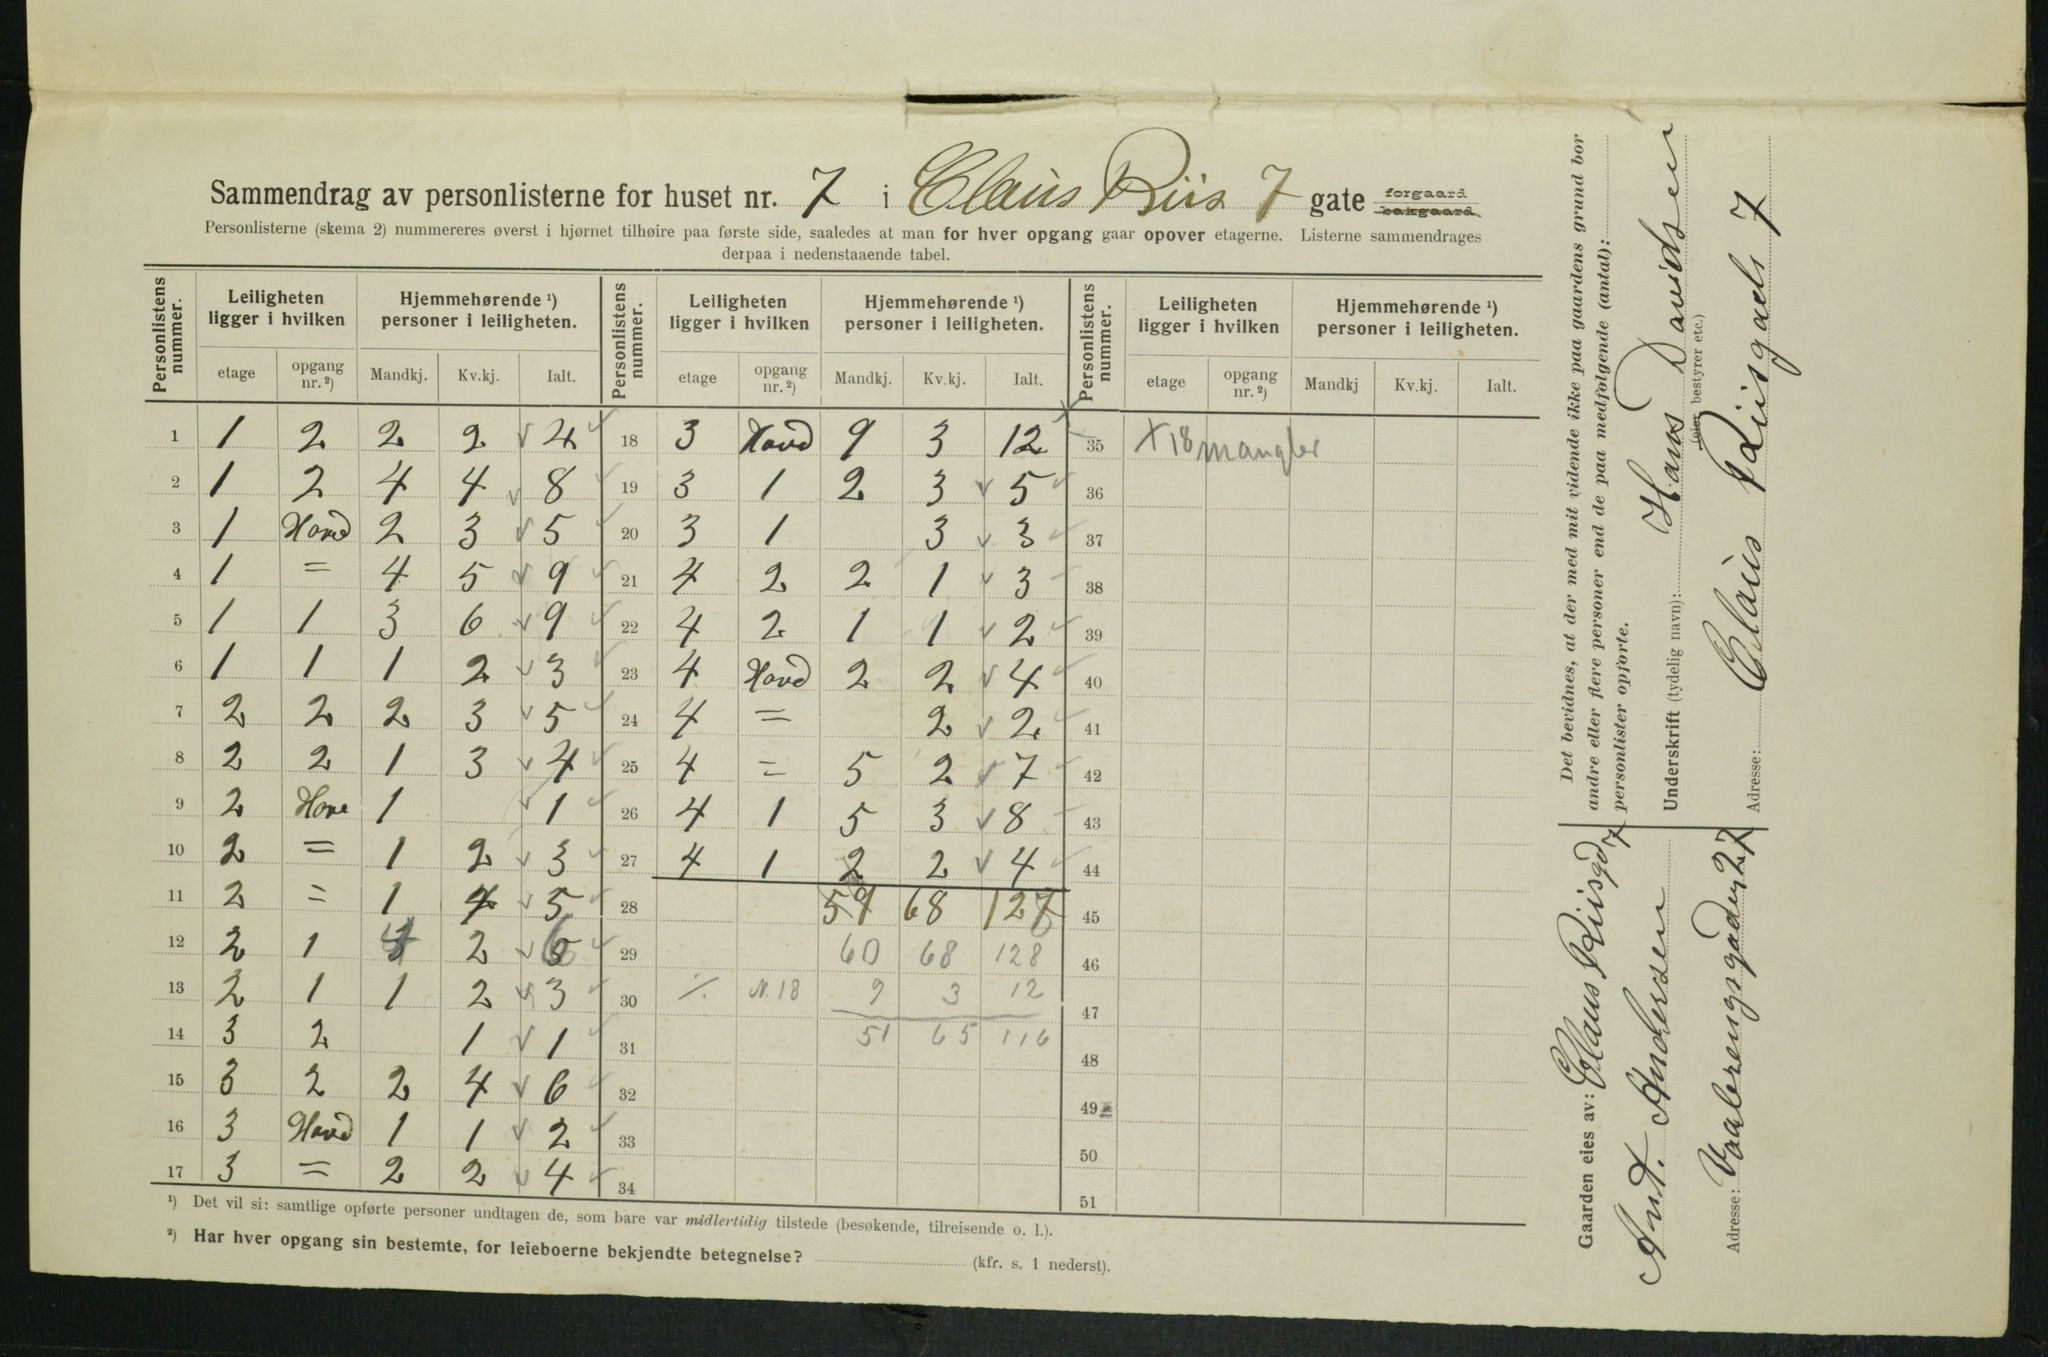 Sammendrag av personlisterne for huset nr. 7 i Claus Riis 7 gate forgaard bakgaard.
Personlisterne (skema 2) nummereres øverst i hjørnet tilhøire paa første side, saaledes at man for hver opgang gaar opover etagerne. Listerne sammendrages
derpaa i nedenstaaende tabel.
Personlistens nummer. Leiligheten ligger i hvilken Hjemmehørende ¹) personer i leiligheten. Personlistens nummer. Leiligheten ligger i hvilken Hjemmehørende ¹) personer i leiligheten. Personlistens nummer. Leiligheten ligger i hvilken Hjemmehørende ¹) personer i leiligheten.
etage opgang nr. ²) Mandkj. Kv.kj. Ialt. etage opgang nr. ²) Mandkj. Kv.kj. Ialt. etage opgang nr. ²) Mandkj Kv.kj. Ialt.
1 1 2 2 2 4 18 3 Hovd 9 3 12 35 X 18 mangler
2 1 2 4 4 8 19 3 1 2 3 5 36
3 1 Hovd 2 3 5 20 3 1 3 3 37
4 1 = 4 5 9 21 4 2 2 1 3 38
5 1 1 3 6 9 22 4 2 1 1 2 39
6 1 1 1 2 3 23 4 Hovd 2 2 4 40
7 2 2 2 3 5 24 4 = 2 2 41
8 2 2 1 3 4 25 4 = 5 2 7 42
9 2 Hove 1 1 26 4 1 5 3 8 43
10 2 = 1 2 3 27 4 1 2 2 4 44
11 2 = 1 4 5 28 59 68 127 45
12 2 1 4 2 6 29 60 68 128 46
13 2 1 1 2 3 30 ./. N. 18 9 3 12 47
14 3 2 1 1 31 51 65 116 48
15 3 2 2 4 6 32 49
16 3 Hovd 1 1 2 33 50
17 3 = 2 2 4 34 51
¹) Det vil si: samtlige opførte personer undtagen de, som bare var midlertidig tilstede (besøkende, tilreisende o. l.).
²) Har hver opgang sin bestemte, for leieboerne bekjendte betegnelse? (kfr. s. 1 nederst).
Det bevidnes, at der med mit vidende ikke paa gaardens grund bor
andre eller flere personer end de paa medfølgende (antal):
personlister opførte.
Underskrift (tydelig navn): Hans Davidsen
(eier, bestyrer etc.)
Adresse: Claus Riisgade 7
Gaarden eies av: Claus Riisgd 7
Ant. Andersen
Adresse: Vaalerengsgaden 27